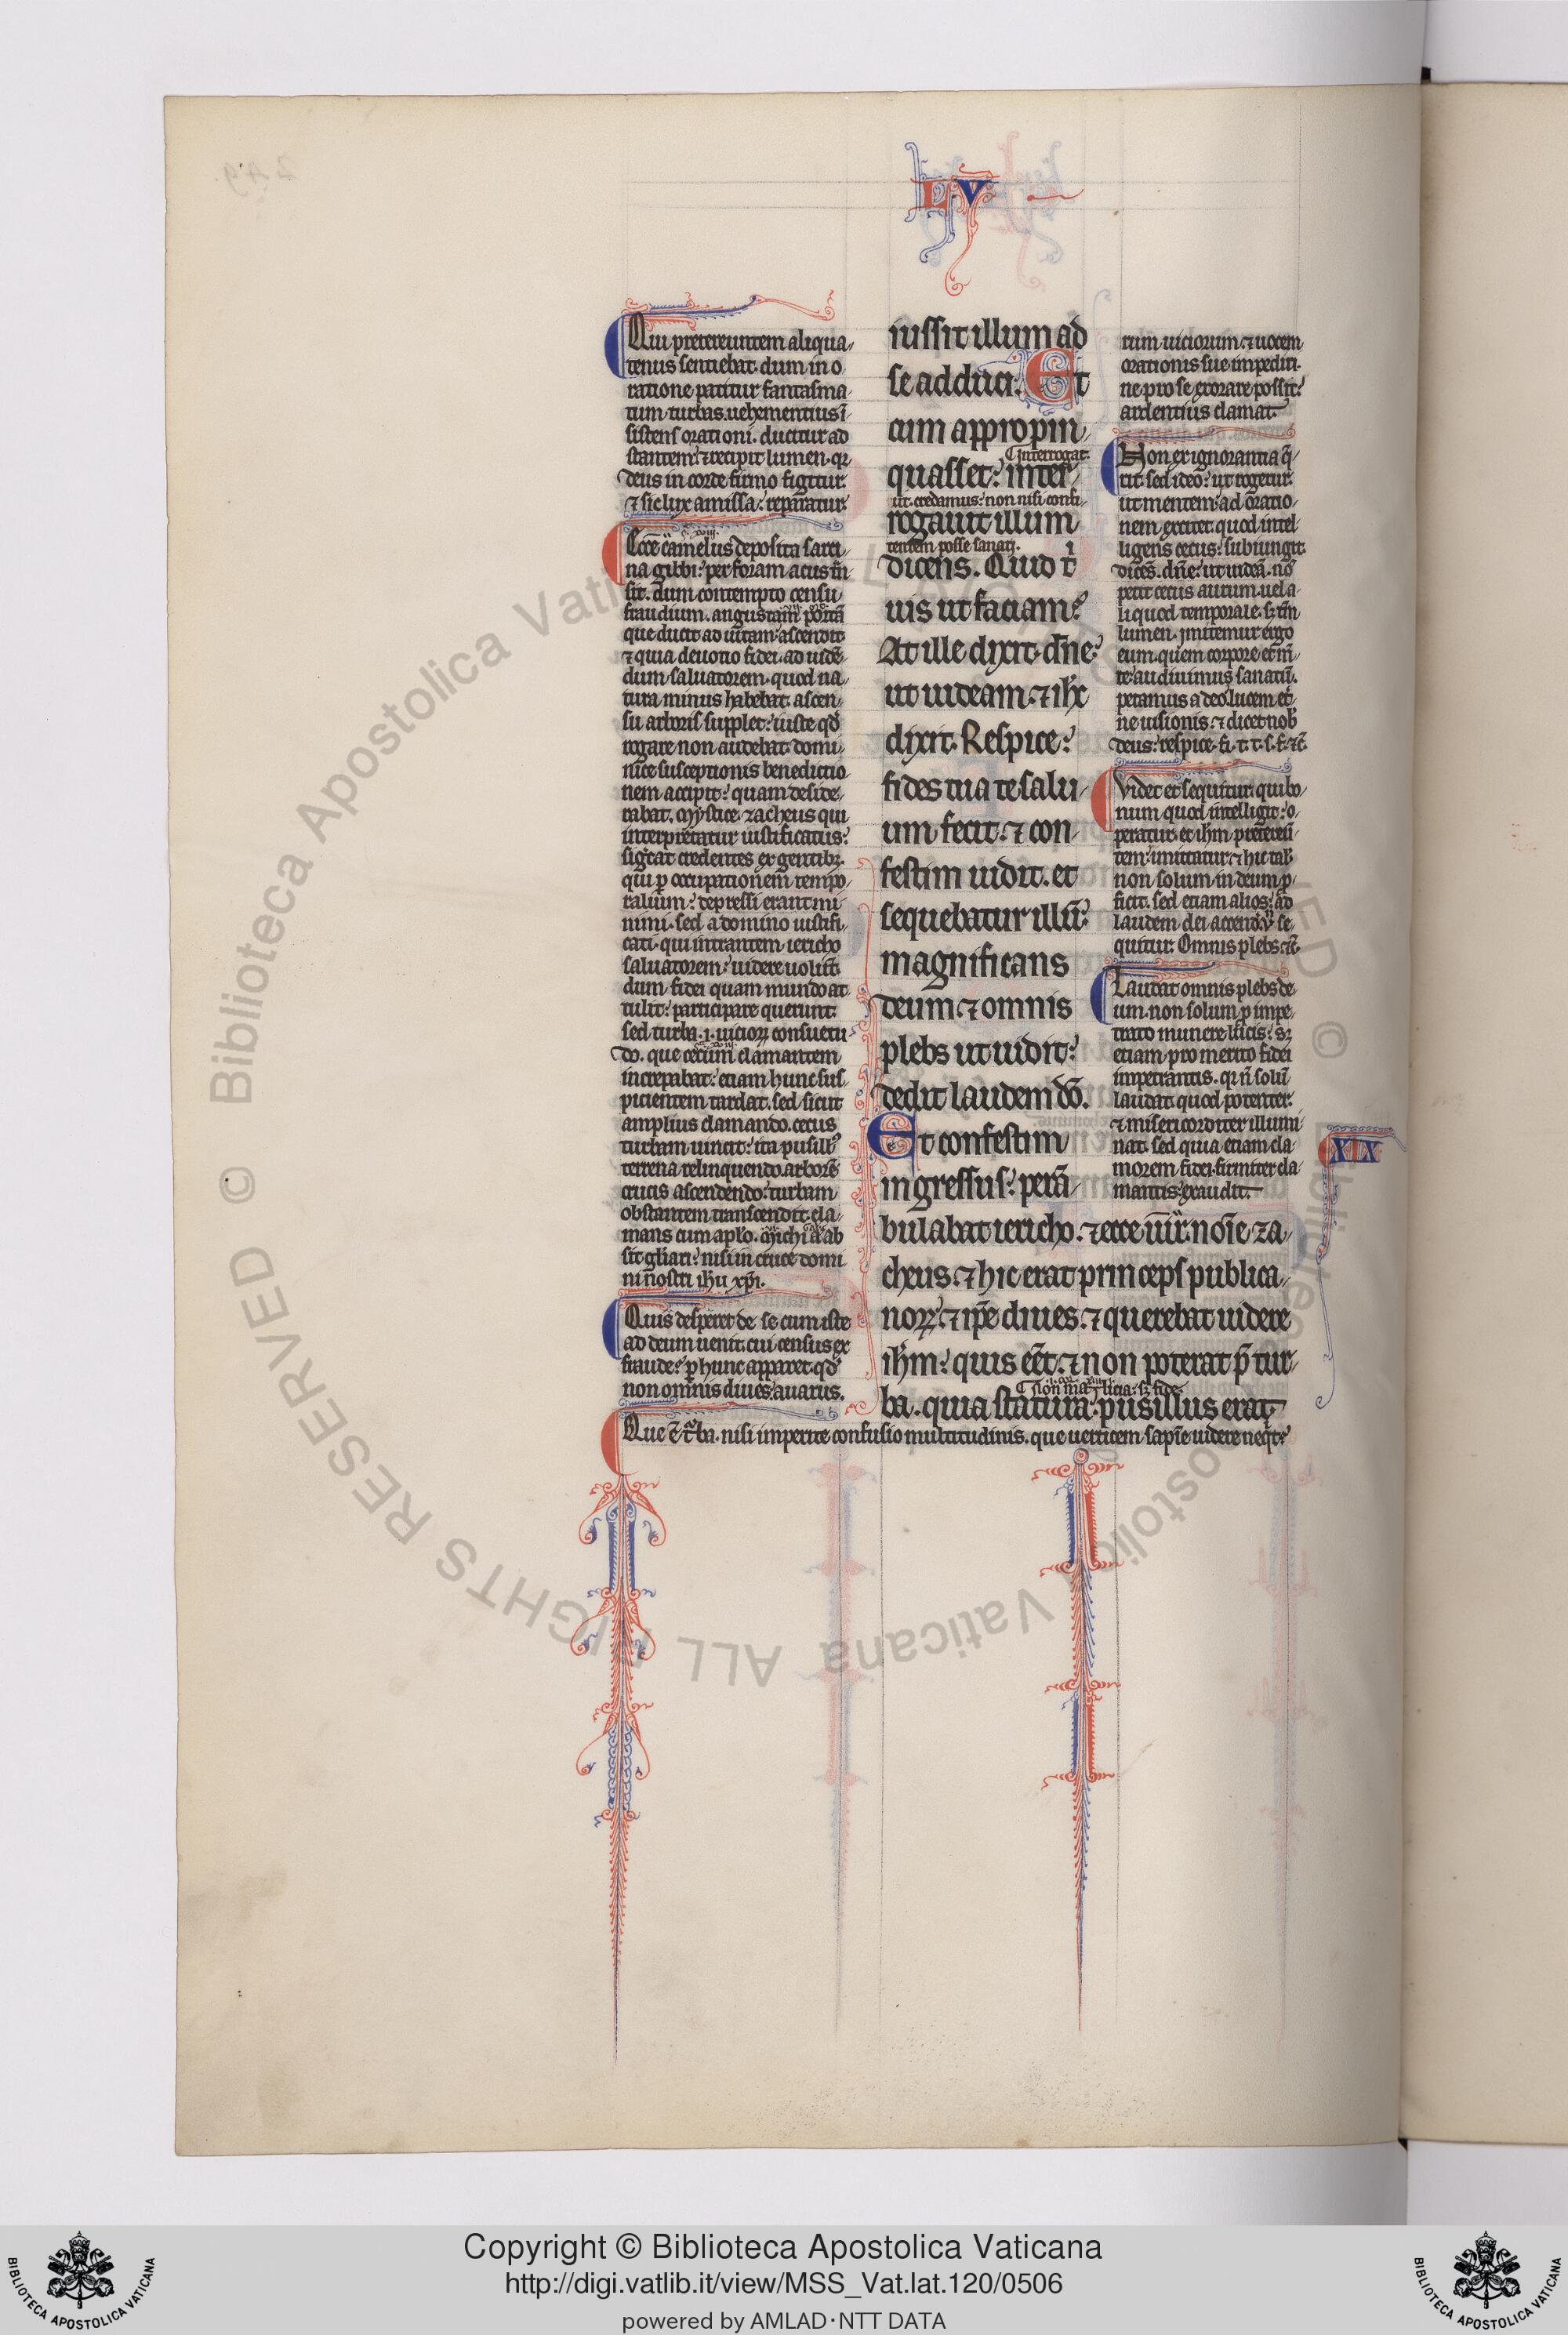 LV
Qui pretereuntem aliqua
tenus sentiebat. dum in o
ratione patitur fantasma
tum turbas. uehementius ī
sistens orationi. ducitur ad
stantem. ⁊ recipit lumen. qr
deus in corde firmo figitur.
⁊ sic lux amissa. reparatur.
Ecce camelus deposita sarci
na gibbi. per foram acus trn̄
sit. dum contempto censu
fraudium. angustam portā
que ducit ad uitam. ascendit
⁊ quia deuotio fidei. ad uidē
dum saluatorem. quod na
tura minus habebat. ascen
su arboris supplet. iuste qd̄
rogare non audebat. domi
nice susceptionis benedictio
nem accipit. quam deside
rabat. Mystice. zacheus qui
interpretatur iustificatus.
sig̃cat credentes ex gentibꝫ.
qui ꝑ occupationem tempo
ralium. depressi erant mi
nimi. sed a domino iustifi
cati. qui intrantem iericho
saluatorem. uidere uolūt.
dum fidei quam mundo at
tulit. participare querunt.
sed turba .i. uicioꝝ consuetu
do. que cecum clamantem
increpabat. etiam hunc sus
picientem tardat. sed sicut
amplius clamando. cecus
turbam uincit. ita pusill'
terrena relinquendo. arborē
crucis ascendendo. turbam
obstantem transcendit. cla
mans cum apl'o. Michi ab
sit gl̄iari. nisi in cruce domi
ni nostri ih̄u xp̄i.
Quis desperet de se cum iste
ad deum uenit. cui census ex
fraude. ꝑ hunc apparet. qd̄
non omnis diues. auarus.
iussit illum ad
se adduci. Et
cum appropin
interrogat.
quasset. inter
ut credamus. non nisi confi
rogauit illum
tentem posse sanari.
dicens. Quid tⁱ
uis ut faciam?
At ille dixit. dn̄e.
ut uideam. ⁊ ih̄c
dixit. Respice.
fides tua te salu
um fecit. ⁊ con
festim uidit. et
sequebatur illū.
magnificans
deum. ⁊ omnis
plebs ut uidit.
dedit laudem dō.
Et confestim
ingressus. perā
bulabat iericho. ⁊ ecce uir. noīe za
cheus. ⁊ hic erat princeps publica
noꝝ. ⁊ ip̄e diues. ⁊ querebat uidere
ih̄m. quis eēt. ⁊ non poterat p̄ tur
non malicia. sꝫ fide.
ba. quia statura. pusillus erat
rum uiciorum. ⁊ uocem
orationis sue impediri.
ne pro se exorare possit.
ardentius clamat.
Non ex ignorantia q̄
rit. sed ideo. ut rogetur.
ut mentem. ad oratio
nem excitet. quod intel
ligens cecus. subiungit
dicēs. dn̄e. ut uideā. nō
petit cecus aurum. uel a
liquod temporale. sꝫ tm̄
lumen. imitemur ergo
eum. quem corpore et mē
te. audiuimus sanatū.
petamus a deo. lucem et
ne uisionis. ⁊ dicet nob'
deus. respice. fi. t. t. s. f. ⁊c̄.
Videt et sequitur. qui bo
num quod intelligit. o
peratur. et ih̄m pretereū
tem. imitatur. ⁊ hic tal'
non solum in deum ꝓ
ficit. sed etiam alios. ad
laudem dei accendit. se
quitur. Omnis plebs. ⁊c̄.
Laudat omnis plebs de
um. non solum ꝓ impe
trato munere lucis. sꝫ
etiam. pro merito fidei
impetrantis. qr n̄ solū
laudat. quod potenter
⁊ misericorditer illumi
nat. sed quia etiam cla
morem fidei. firmiter cla
mantis. exaudit.
XIX
Que ē turba. nisi imperite confusio multitudinis. que uerticem sapīe uidere neqt.
Copyright © Biblioteca Apostolica Vaticana
http://digi.vatlib.it/view/MSS_Vat.lat.120/0506
powered by AMLAD·NTT DATA
BIBLIOTECA APOSTOLICA VATICANA
BIBLIOTECA APOSTOLICA VATICANA
© Biblioteca Apostolica Vaticana ALL RIGHTS RESERVED